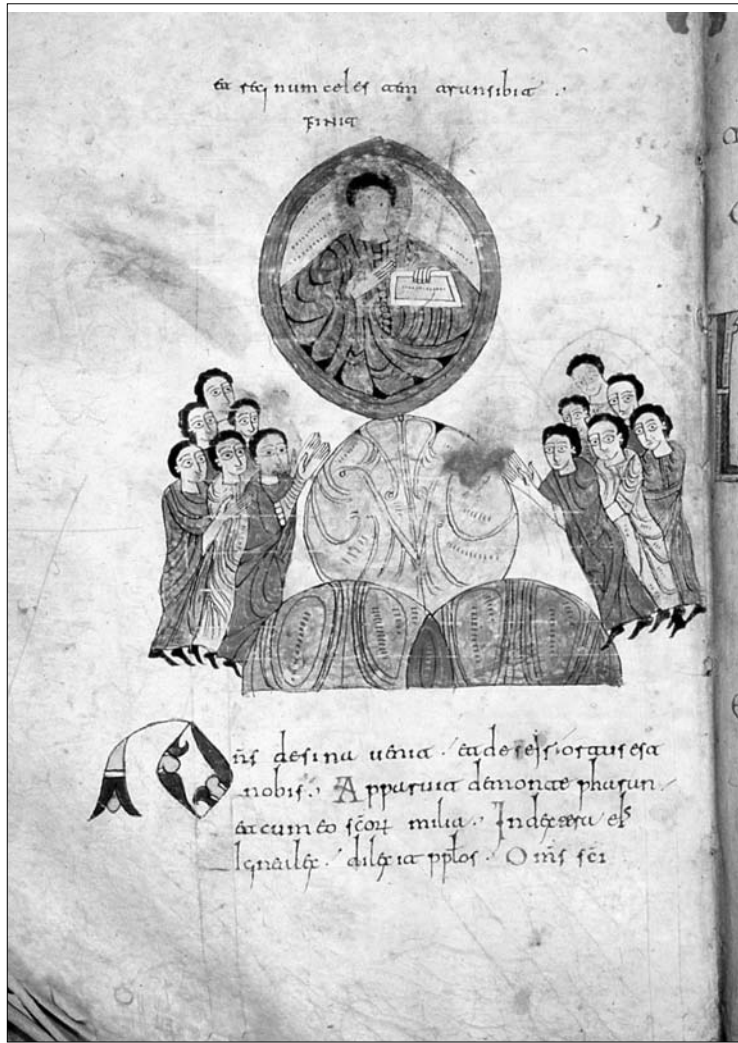 et regnum celestem transibit .
FINIT
Dñs de sina venit / et de seir / ortus est
nobis . Apparuit de monte pharan /
et cum eo sc̄oꝝ milia . In dextera ei̅s
Ignea lex / dilexit pp̄los . Om̄s sc̄i